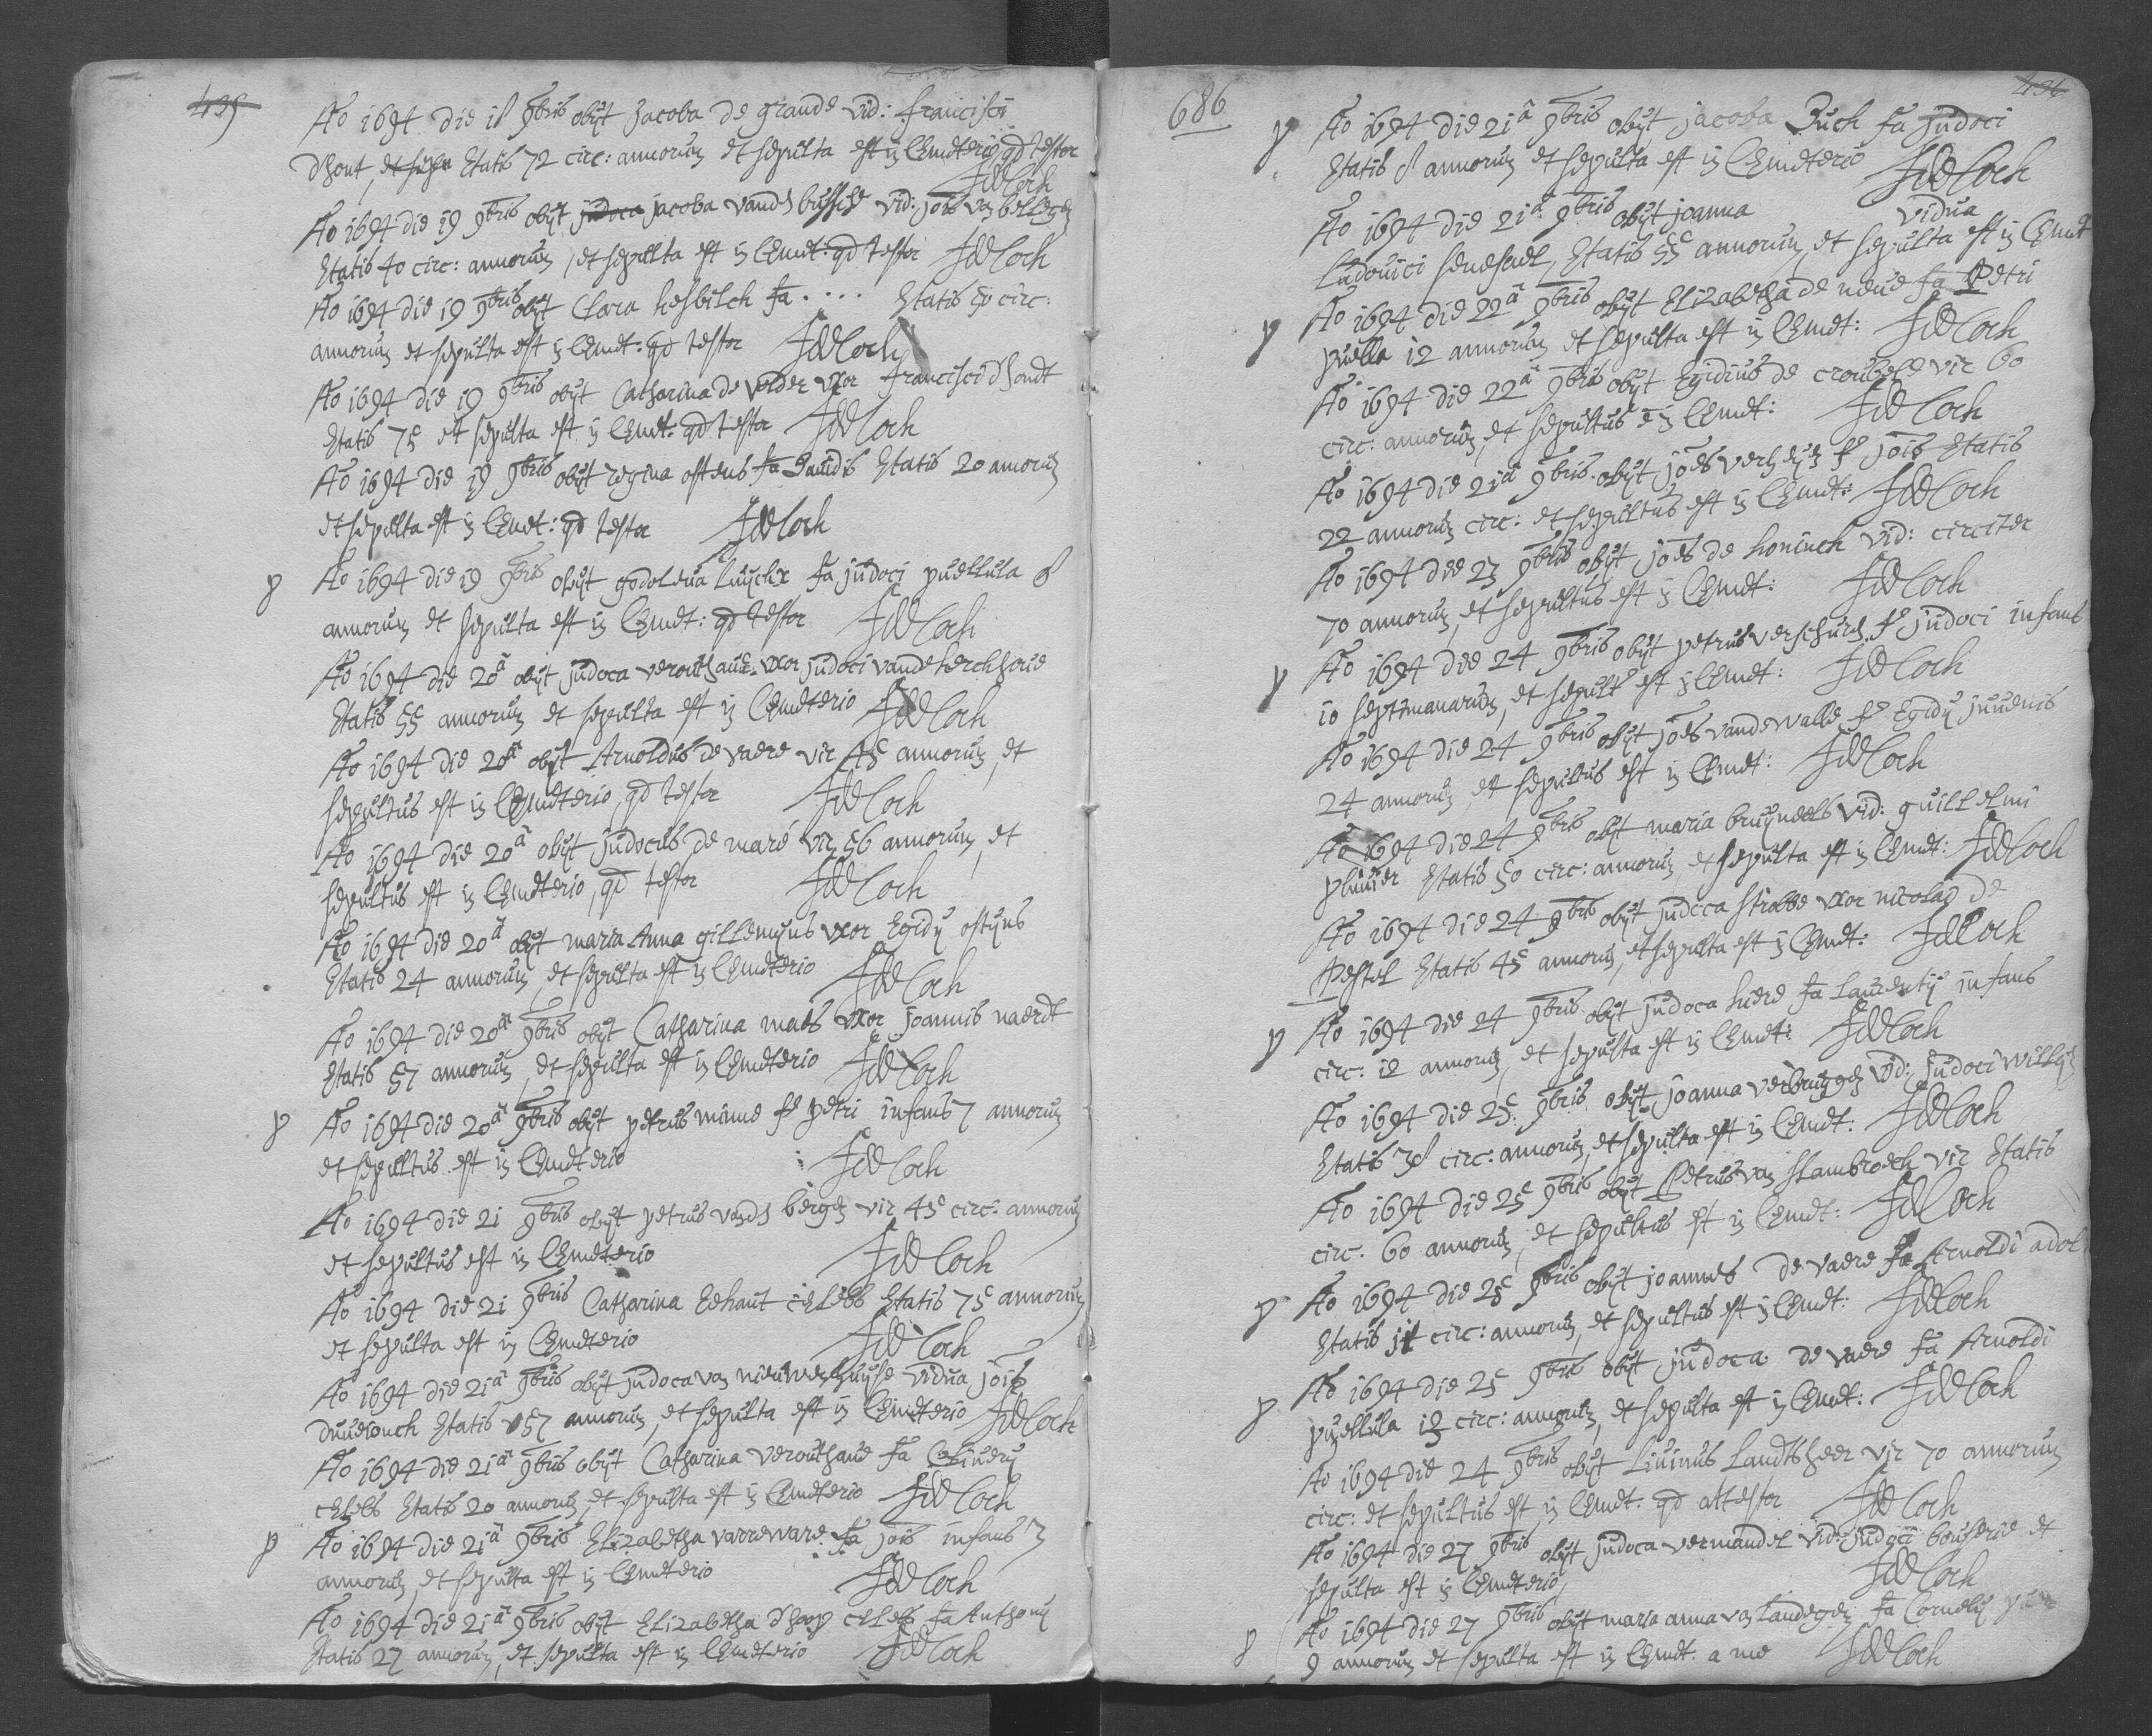 435
Ao 1694 die 18 9bris obijt Jacoba de grande vid: francisci
dhont, Etatis 72 circ: annorum et sepulta est in Cemeterio qd testor
JDCoch
Ao 1694 die 19 9bris obijt jacoba vanden bussche vid: jois
Etatis 40 circ: annorum, et sepulta est in Cemet: qd testor JDCoch
Ao 1694 die 19 9bris obijt Clara hesbilch fa .... Etatis 50 circ:
annorum et sepulta est in Cemet: qd testor JDCoch
Ao 1694 die 19 9bris obijt Catharina de volder vxor francisci dhondt
Etatis 75 et sepulta est in Cemet: qd testor JDCoch
Ao 1694 die 19 9bris obijt regina ostens fa Dauidis Etatis 20 annorum
et sepulta est in Cemet: qd testor JDCoch
p Ao 1694 die 19 9bris obijt godoleua luyckx fa judoci puellula 8
annorum et sepulta est in Cemet: qd testor JDCoch
Ao 1694 die 20a obijt judoca verouthaue vxor judoci vande kerchhoue
Etatis 55 annorum et sepulta est in Cemeterio JDCoch
Ao 1694 die 20a obijt Arnoldus de vaere vir 45 annorum, et
sepultus est in Cemeterio, qd testor JDCoch
Ao 1694 die 20a obijt judocus de maré vir 56 annorum, et
sepultus est in Cemeterio, qd testor JDCoch
Ao 1694 die 20a obijt maria Anna gillemyns vxor Egidij ostyns
Etatis 24 annorum, et sepulta est in Cemeterio JDCoch
Ao 1694 die 20a 9bris obijt Catharina maes vxor Joannis naerdt
Etatis 57 annorum, et sepulta est in Cemeterio JDCoch
p Ao 1694 die 20a 9bris obijt petrus minne fs petri infans 7 annorum
et sepultus est in Cemeterio JDCoch
Ao 1694 die 21 9bris obijt petrus vanden bergen vir 45 circ: annorum
et sepultus est in Cemeterio JDCoch
Ao 1694 die 21 9bris Catharina Eehaut celebs Etatis 75 annorum
et sepulta est in Cemeterio JDCoch
Ao 1694 die 21a 9bris obijt judoca van nieuwenhuyse vidua jois
Etatis 57 annorum, et sepulta est in Cemeterio JDCoch
Ao 1694 die 21a 9bris obijt Catharina verouthaue fa Oliuerij
celebs Etatis 20 annorum, et sepulta est in Cemeterio JDCoch
p Ao 1694 die 21a 9bris Elizabetha varreware fa jois infans 3
annorum, et sepulta est in Cemeterio JDCoch
Ao 1694 die 21a 9bris obijt Elizabetha dhoop celebs fa Anthonij
Etatis 27 annorum, et sepulta est in Cemeterio JDCoch
686
436
p Ao 1694 die 21a 9bris obijt jacoba Buch fa judoci
Etatis 8 annorum et sepulta est in Cemeterio JDCoch
Ao 1694 die 21a 9bris obijt joanna vidua
Ludouici seneschel, Etatis 55 annorum, et sepulta est in Cemet
p Ao 1694 die 22a 9bris obijt Elizabetha de neue fa Petri
puella 12 annorum et sepulta est in Cemet: JDCoch
Ao 1694 die 22a 9bris obijt Egidius de croubele vir 60
circ: annorum, et sepultus e in Cemet: JDCoch
Ao 1694 die 21a 9bris obijt joes verheyen fs jois Etatis
22 annorum circ: et sepultus est in Cemet: JDCoch
Ao 1694 die 23 9bris obijt joes de koninck vid: circiter
70 annorum, et sepultus est in Cemet: JDCoch
p Ao 1694 die 24 9bris obijt petrus verschuren fs judoci infans
10 septimanarum, et sepult est in Cemet: JDCoch
Ao 1694 die 24 9bris obijt joes vandewalle fs Egidij juuenis
24 annorum, et sepultus est in Cemet: JDCoch
Ao 1694 die 24 9bris obijt maria bruyneels vid: guillelmi
pluuier Etatis 50 circ: annorum, et sepulta est in Cemet: JDCoch
Ao 1694 die 24 9bris obijt judoca strobbe vxor nicolai de
Pestel Etatis 45 annorum, et sepulta est in Cemet: JDCoch
p Ao 1694 die 24 9bris obijt judoca hiere fa laurentij infans
circ: 12 annorum, et sepulta est in Cemet: JDCoch
Ao 1694 die 25 9bris obijt joanna verbruggen vid: judoci
Etatis 38 circ: annorum, et sepulta est in Cemet: JDCoch
Ao 1694 die 25 9bris obijt Petrus van stambroech vir Etatis
circ: 60 annorum, et sepultus est in Cemet: JDCoch
p Ao 1694 die 25 9bris obijt joannes de vaere Arnoldi adol
Etatis circ: annorum, et sepultus est in Cemet: JDCoch
p Ao 1694 die 25 9bris obijt judoca de vaere fa Arnoldi
puellula circ: annorum, et sepulta est in Cemet: JDCoch
Ao 1694 die 24 9bris obijt liuinus landtsheer vir 70 annorum
circ: et sepultus est in Cemet: qd attestor JDCoch
Ao 1694 die 27 9bris obijt judoca vermandel vid: judoci bouserie et
sepulta est in Cemeterio JDCoch
p Ao 1694 die 27 9bris obijt maria anna van landegem fa Cornelij
9 annorum et sepulta est in Cemet: a me JDCoch